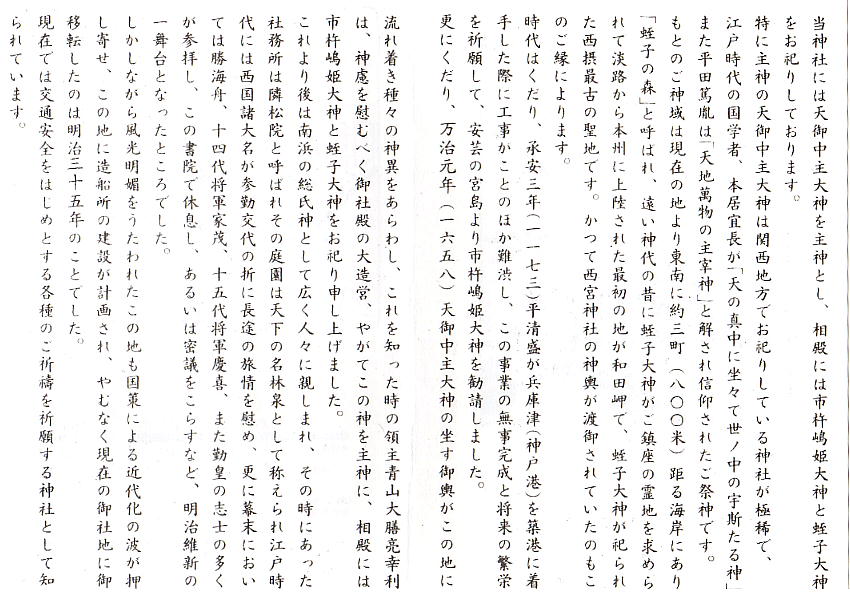 当神社には天御中主大神を主神とし、相殿には市杵嶋姫大神と蛭子大神
をお祀りしております。
特に主神の天御中主大神は関西地方でお祀りしている神社が極稀で、
江戸時代の国学者、本居宜長が「天の真中に坐々て世ノ中の宇斯たる神」
また平田篤胤は「天地萬物の主宰神」と解され信仰されたご祭神です。
もとのご神域は現在の地より東南に約三町（八〇〇米）距る海岸にあり
「蛭子の森」と呼ばれ、遠い神代の昔に蛭子大神がご鎮座の霊地を求めら
れて淡路から本州に上陸された最初の地が和田岬で、蛭子大神が祀られ
た西摂最古の聖地です。かつて西宮神社の神輿が渡御されていたのもこ
のご縁によります。
時代はくだり、承安三年（一一七三）平清盛が兵庫津（神戸港）を築港に着
手した際に工事がことのほか難渋し、この事業の無事完成と将来の繁栄
を祈願して、安芸の宮島より市杵嶋姫大神を勧請しました。
更にくだり、万治元年（一六五八）天御中主大神の坐す御輿がこの地に
流れ着き種々の神異をあらわし、これを知った時の領主青山大膳亮幸利
は、神慮を慰むべく御社殿の大造営、やがてこの神を主神に、相殿には
市杵嶋姫大神と蛭子大神をお祀り申し上げました。
これより後は南浜の総氏神として広く人々に親しまれ、その時にあった
社務所は隣松院と呼ばれその庭園は天下の名林泉として称えられ江戸時
代には西国諸大名が参勤交代の折に長途の旅情を慰め、更に幕末におい
ては勝海舟、十四代将軍家茂、十五代将軍慶喜、また勤皇の志士の多く
が参拝し、この書院で休息し、あるいは密議をこらすなど、明治維新の
一舞台となったところでした。
しかしながら風光明媚をうたわれたこの地も国策による近代化の波が押
し寄せ、この地に造船所の建設が計画され、やむなく現在の御社地に御
移転したのは明治三十五年のことでした。
現在では交通安全をはじめとする各種のご祈禱を祈願する神社として知
られています。